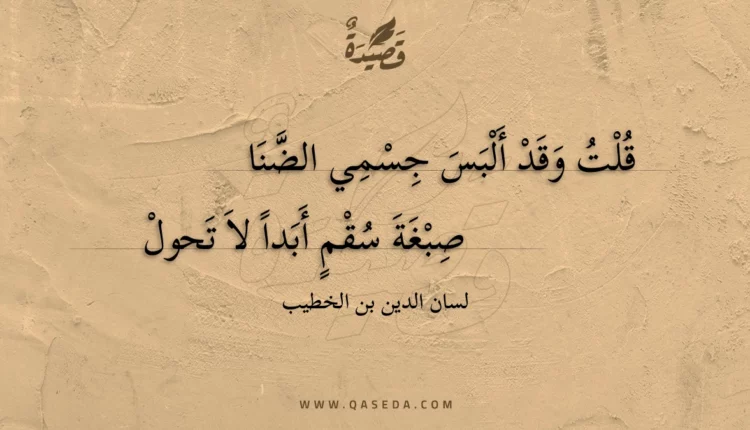 قَصِيدَةٌ
قُلْتُ وَقَدْ أَلْبَسَ جِسْمِي الضَّنَا
صِبْغَةَ سُقْمٍ أَبَداً لاَ تَحولْ
لسان الدين بن الخطيب
WWW.QASEDA.COM